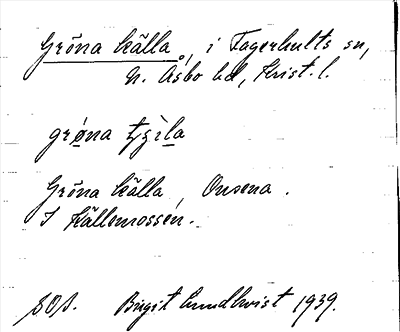 Gröna källa, i Fagerhults sn,
N. Åsbo hd, Krist. l.
Gröna källa, Onsena.
I Källemossen.
SOJ. Birgit Lundkvist 1939.